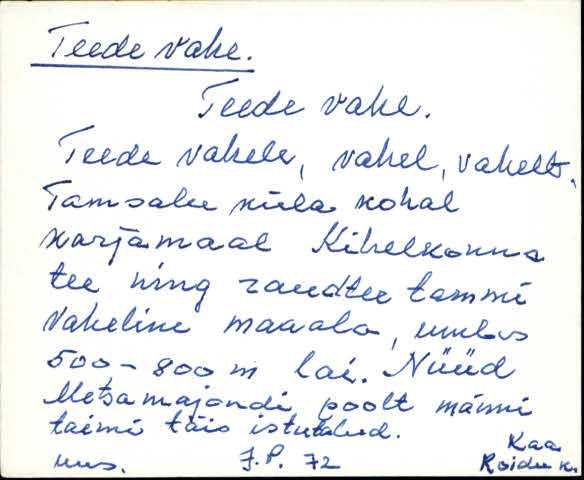 Teede vahe.
Teede vahe.
Teede vahele, vahel, vahelt.
Tamsalu küla kohal
karjamaal Kihelkonna
tee ning raudtee tammi
vaheline maaala, umbes
500-800 m lai. Nüüd
Metsamajandi poolt männi
taimi täis istutatud.
Kaa
mus. J.P. 72 Roidu k.